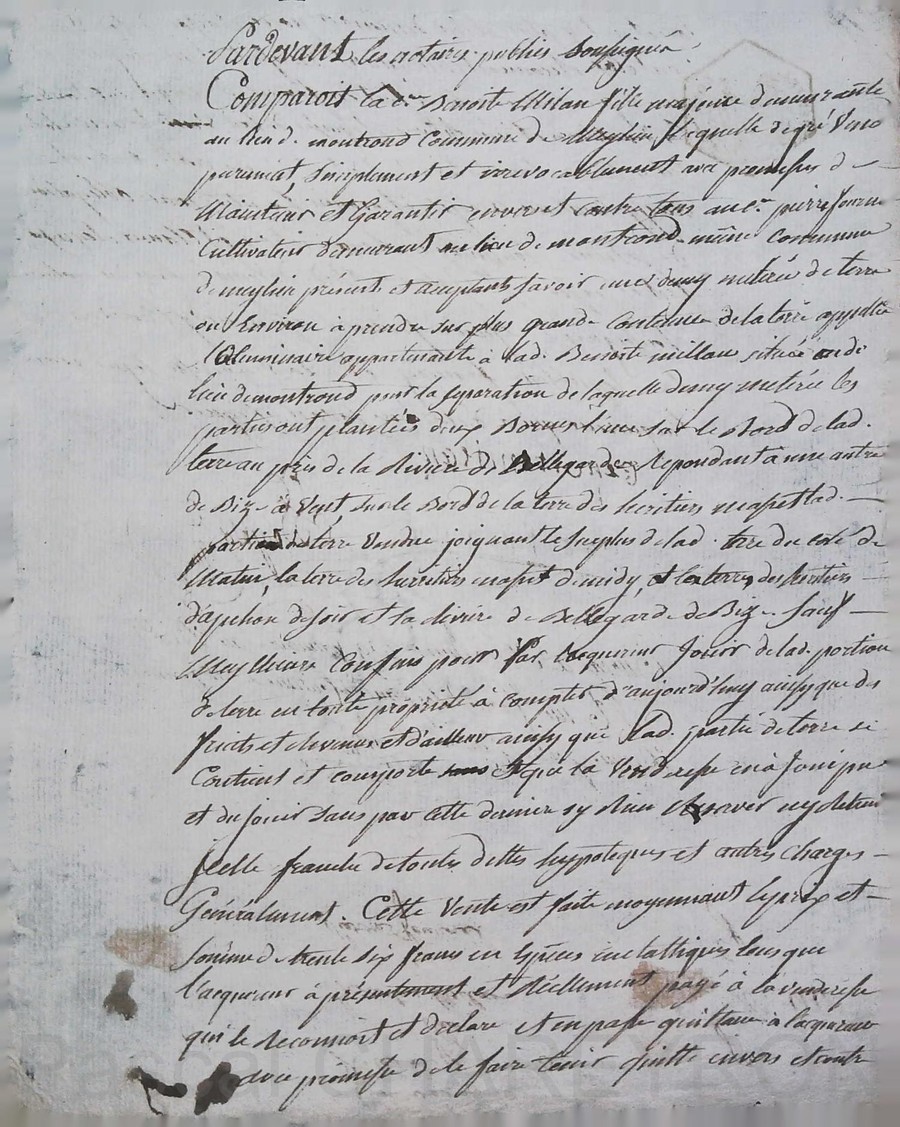 Pardevant les notaires publics soussignés
Comparoit la c.ne Benoite Milan fille majeure demeurante
au lieu d. montrond Commune de Meylieu, laquelle de gré vend
purement, simplement et irrevocablement avec promesses de
Maintenir et Garantir envers et contre tous au c.en pierre
Cultivateur demeurant au lieu de montrond même commune
de meylieu présent et acceptant savoir une demy meterée de terre
ou Environ à prendre sur plus grande Contenue de la terre appellée
appartenante à lad. Benoite millan située au di
lieu de montrond pour la separation de laquelle demy meterée les
parties ont plantées deux Bornes l'une sur le Bord de lad.
terre au près de la Riviere de Bellegarde Repondant à une autre
de Bize à Vent, sur le Bord de la terre des héritiers lad.
partie de terre Vendue joignant le surplus de lad. terre du coté de
Matin, la terre des heretiers de midy, et les terres des heritiers
d'apchon de soir et la riviere de Bellegarde de Bize sauf
Meylleurs Confins pour par l'acquereur Jouir de lad. portion
de terre en toute propriété à compter d'aujourd'huy ainsy que des
fruits et revenus et d'ailleur ainsy que lad. partie de terre se
Contient et comporte et que la Venderesse en a Joui pu
et du Jouir sans par cette derniere sy Rien Reserver ny retenir
Icelle franche de toutes dettes hypoteques et autres Charges
Généralement. Cette Vente est faite moyennant le prix et
somme de trente six francs en Espèces metalliques lous que
l'acquereur à présentement et Réellement payé à la venderesse
qui le Reconnoit et declare et en passe quittance à l'acquereur
avec promesse de le faire tenir quitte envers et contre